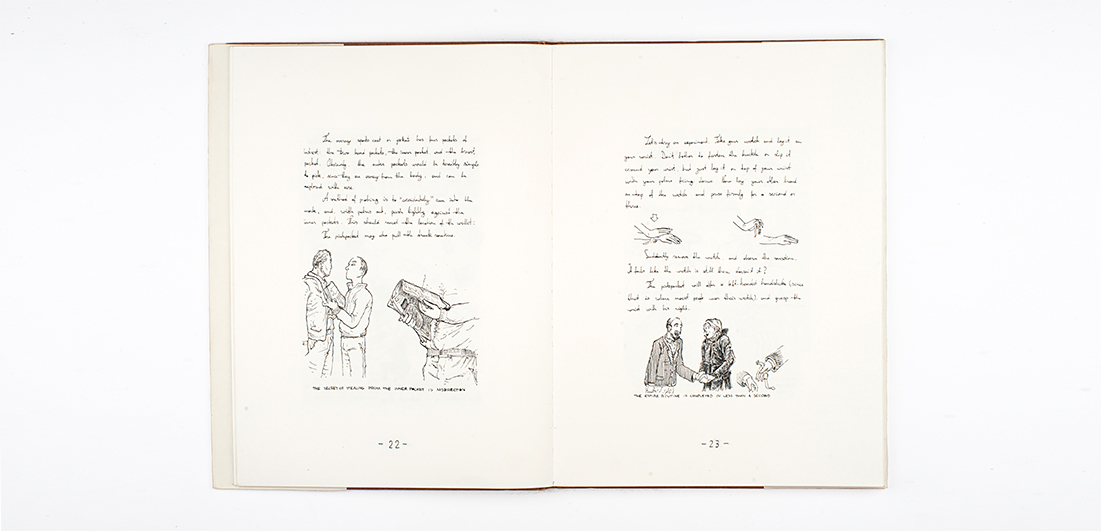 The average sports coat or jacket has four pockets of
interest: the two hand pockets, the inner pocket and the breast
pocket. Obviously, the outer pockets would be terribly simple
to pick, since they are away from the body, and can be
explored with ease.
A method of probing is to "accidentally" run into the
mark, and, with palms out, push lightly against the
inner pockets. This should reveal the location of the wallet.
The pickpocket may also pull the drunk routine.
THE SECRET OF STEALING FROM THE INNER POCKET IS MISDIRECTION
- 22 -
Let's try an experiment. Take your watch and lay it on
your wrist. Don't bother to fasten the buckle or slip it
around your wrist, but just lay it on top of your wrist
with your palms facing down. Now lay your other hand
on top of the watch and press firmly for a second or
three.
Suddenly remove the watch and observe the sensation.
It feels like the watch is still there, doesn't it?
The pickpocket will offer a left-handed handshake (since
that is where most people wear their watch) and grasp the
wrist with his right.
THE ENTIRE ROUTINE IS COMPLETED IN LESS THAN A SECOND
- 23 -